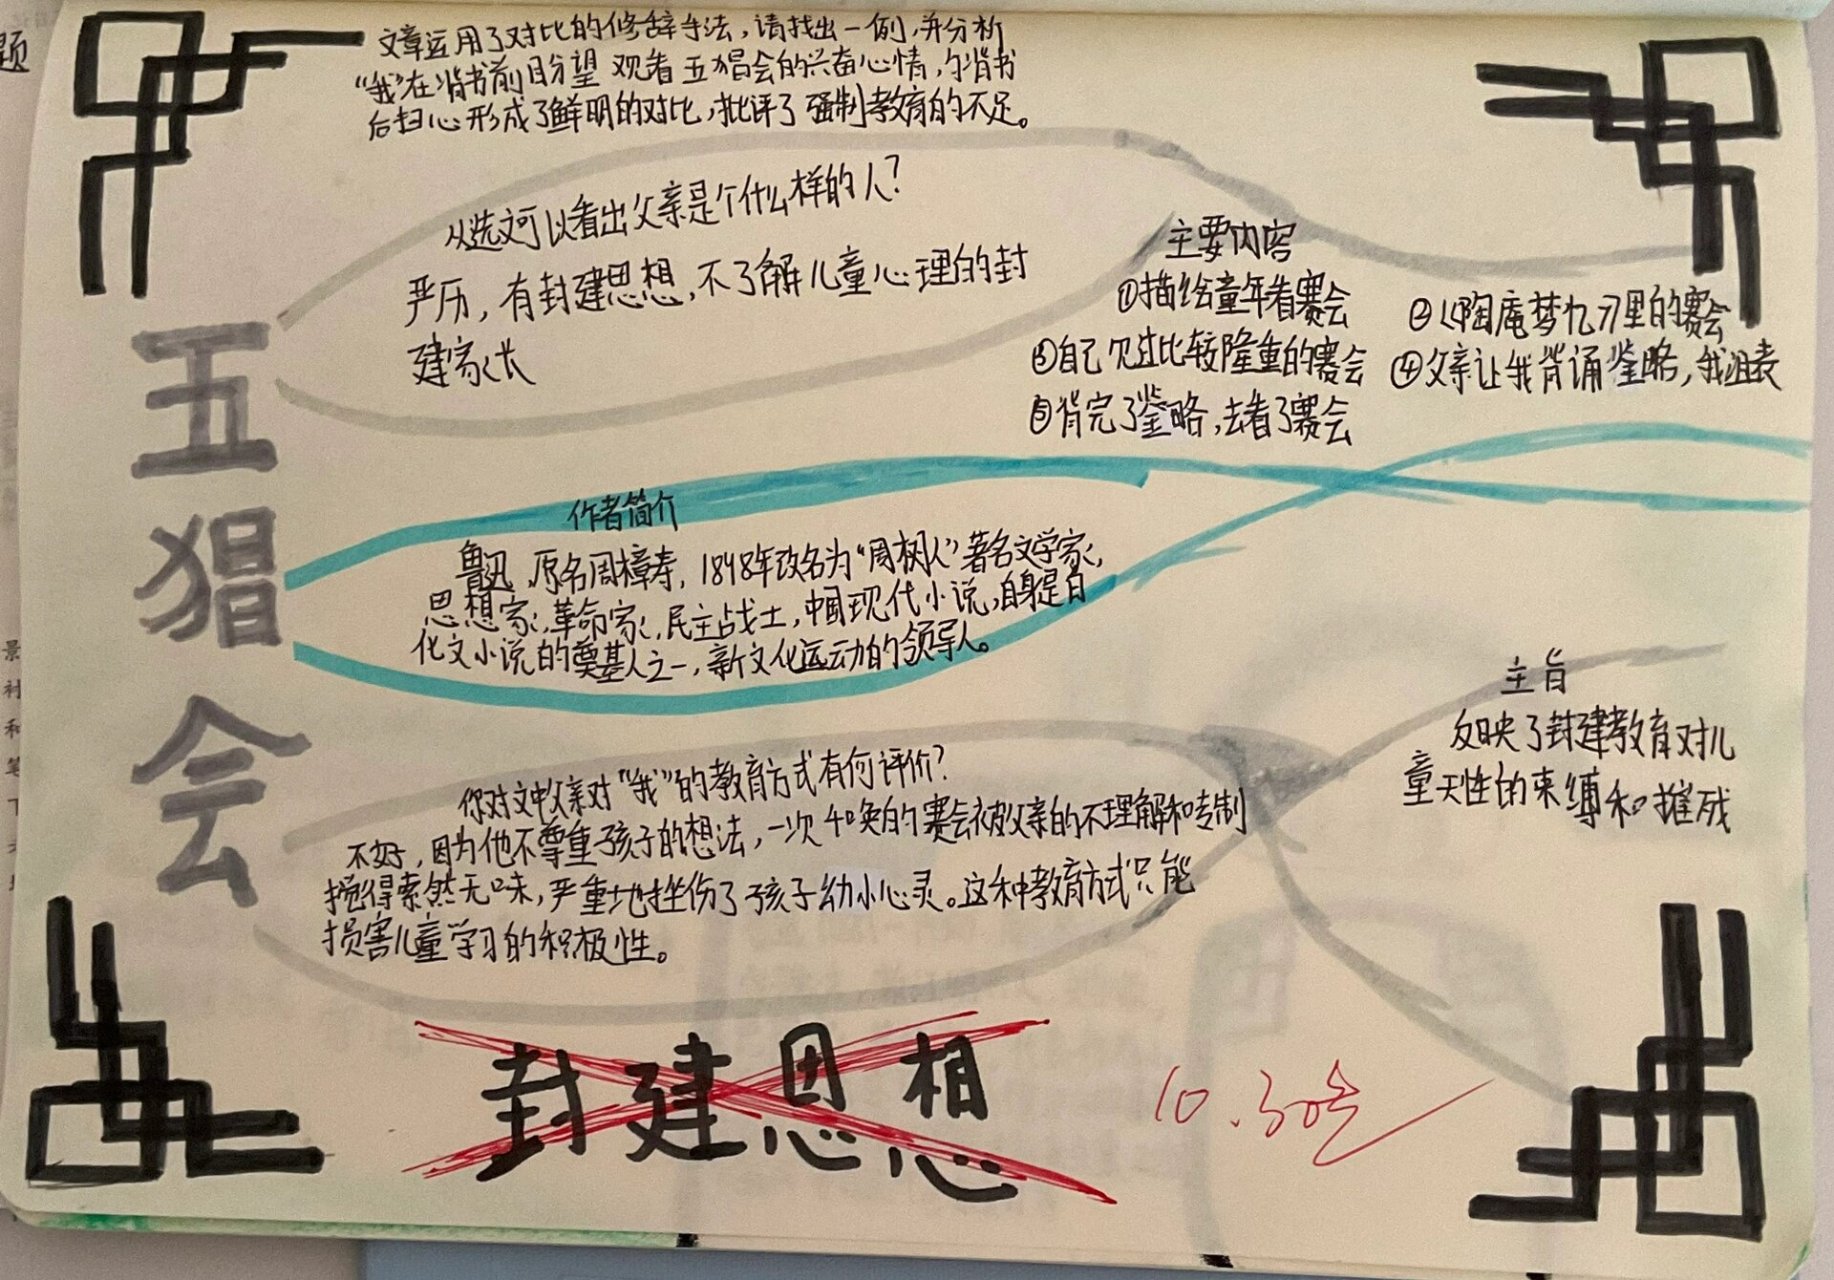 文章运用了对比的修辞手法,请找出一例,并分析
“我”在背书前盼望 观看 五猖会的兴奋心情,与背书
后扫心形成了鲜明的对比,批评了强制教育的不足。
从选文可以看出父亲是个什么样的人?
严历,有封建思想,不了解儿童心理的封
建家长
主要内容
①描绘童年看赛会
②《陶庵梦忆》里的赛会
③自己见过比较隆重的赛会
④父亲让我背诵鉴略,我沮丧
⑤背完了鉴略,去看了赛会
五猖会
作者简介
鲁迅,原名周樟寿,1898年改名为“周树人”著名文学家,
思想家,革命家,民主战士,中国现代小说,自身是白
化文小说的奠基人之一,新文化运动的领导人。
主旨
反映了封建教育对儿
童天性的束缚和摧残
你对文中父亲对“我”的教育方式有何评价?
不好,因为他不尊重孩子的想法,一次 的赛会被父亲的不理解和专制
搅得索然无味,严重地挫伤了孩子幼小心灵。这种教育方式只能
损害儿童学习的积极性。
封建思想
10.30
题